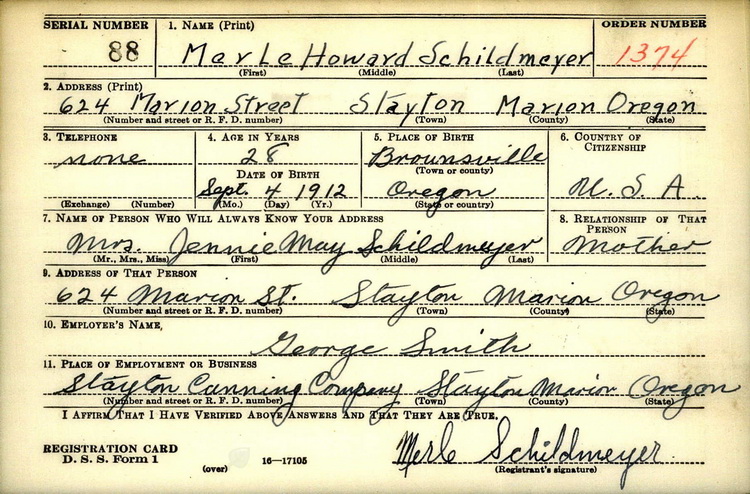 SERIAL NUMBER 1. NAME (Print) ORDER NUMBER
88 Merle Howard Schildmeyer 1374
(First) (Middle) (Last)
2. ADDRESS (Print)
624 Marion Street Stayton Marion Oregon
(Number and street or R. F. D. number) (Town) (County) (State)
3. TELEPHONE 4. AGE IN YEARS 5. PLACE OF BIRTH 6. COUNTRY OF CITIZENSHIP
none 28 Brownsville
DATE OF BIRTH (Town or county)
Sept. 4 1912 Oregon U. S. A.
(Exchange) (Number) (Mo.) (Day) (Yr.) (State or country)
7. NAME OF PERSON WHO WILL ALWAYS KNOW YOUR ADDRESS 8. RELATIONSHIP OF THAT PERSON
Mrs. Jennie May Schildmeyer Mother
(Mr., Mrs., Miss) (First) (Middle) (Last)
9. ADDRESS OF THAT PERSON
624 Marion St. Stayton Marion Oregon
(Number and street or R. F. D. number) (Town) (County) (State)
10. EMPLOYER'S NAME,
George Smith
11. PLACE OF EMPLOYMENT OR BUSINESS
Stayton Canning Company Stayton Marion Oregon
(Number and street or R. F. D. number) (Town) (County) (State)
I AFFIRM THAT I HAVE VERIFIED ABOVE ANSWERS AND THAT THEY ARE TRUE.
REGISTRATION CARD Merle Schildmeyer
D. S. S. Form 1 (over) 16—17105 (Registrant's signature)